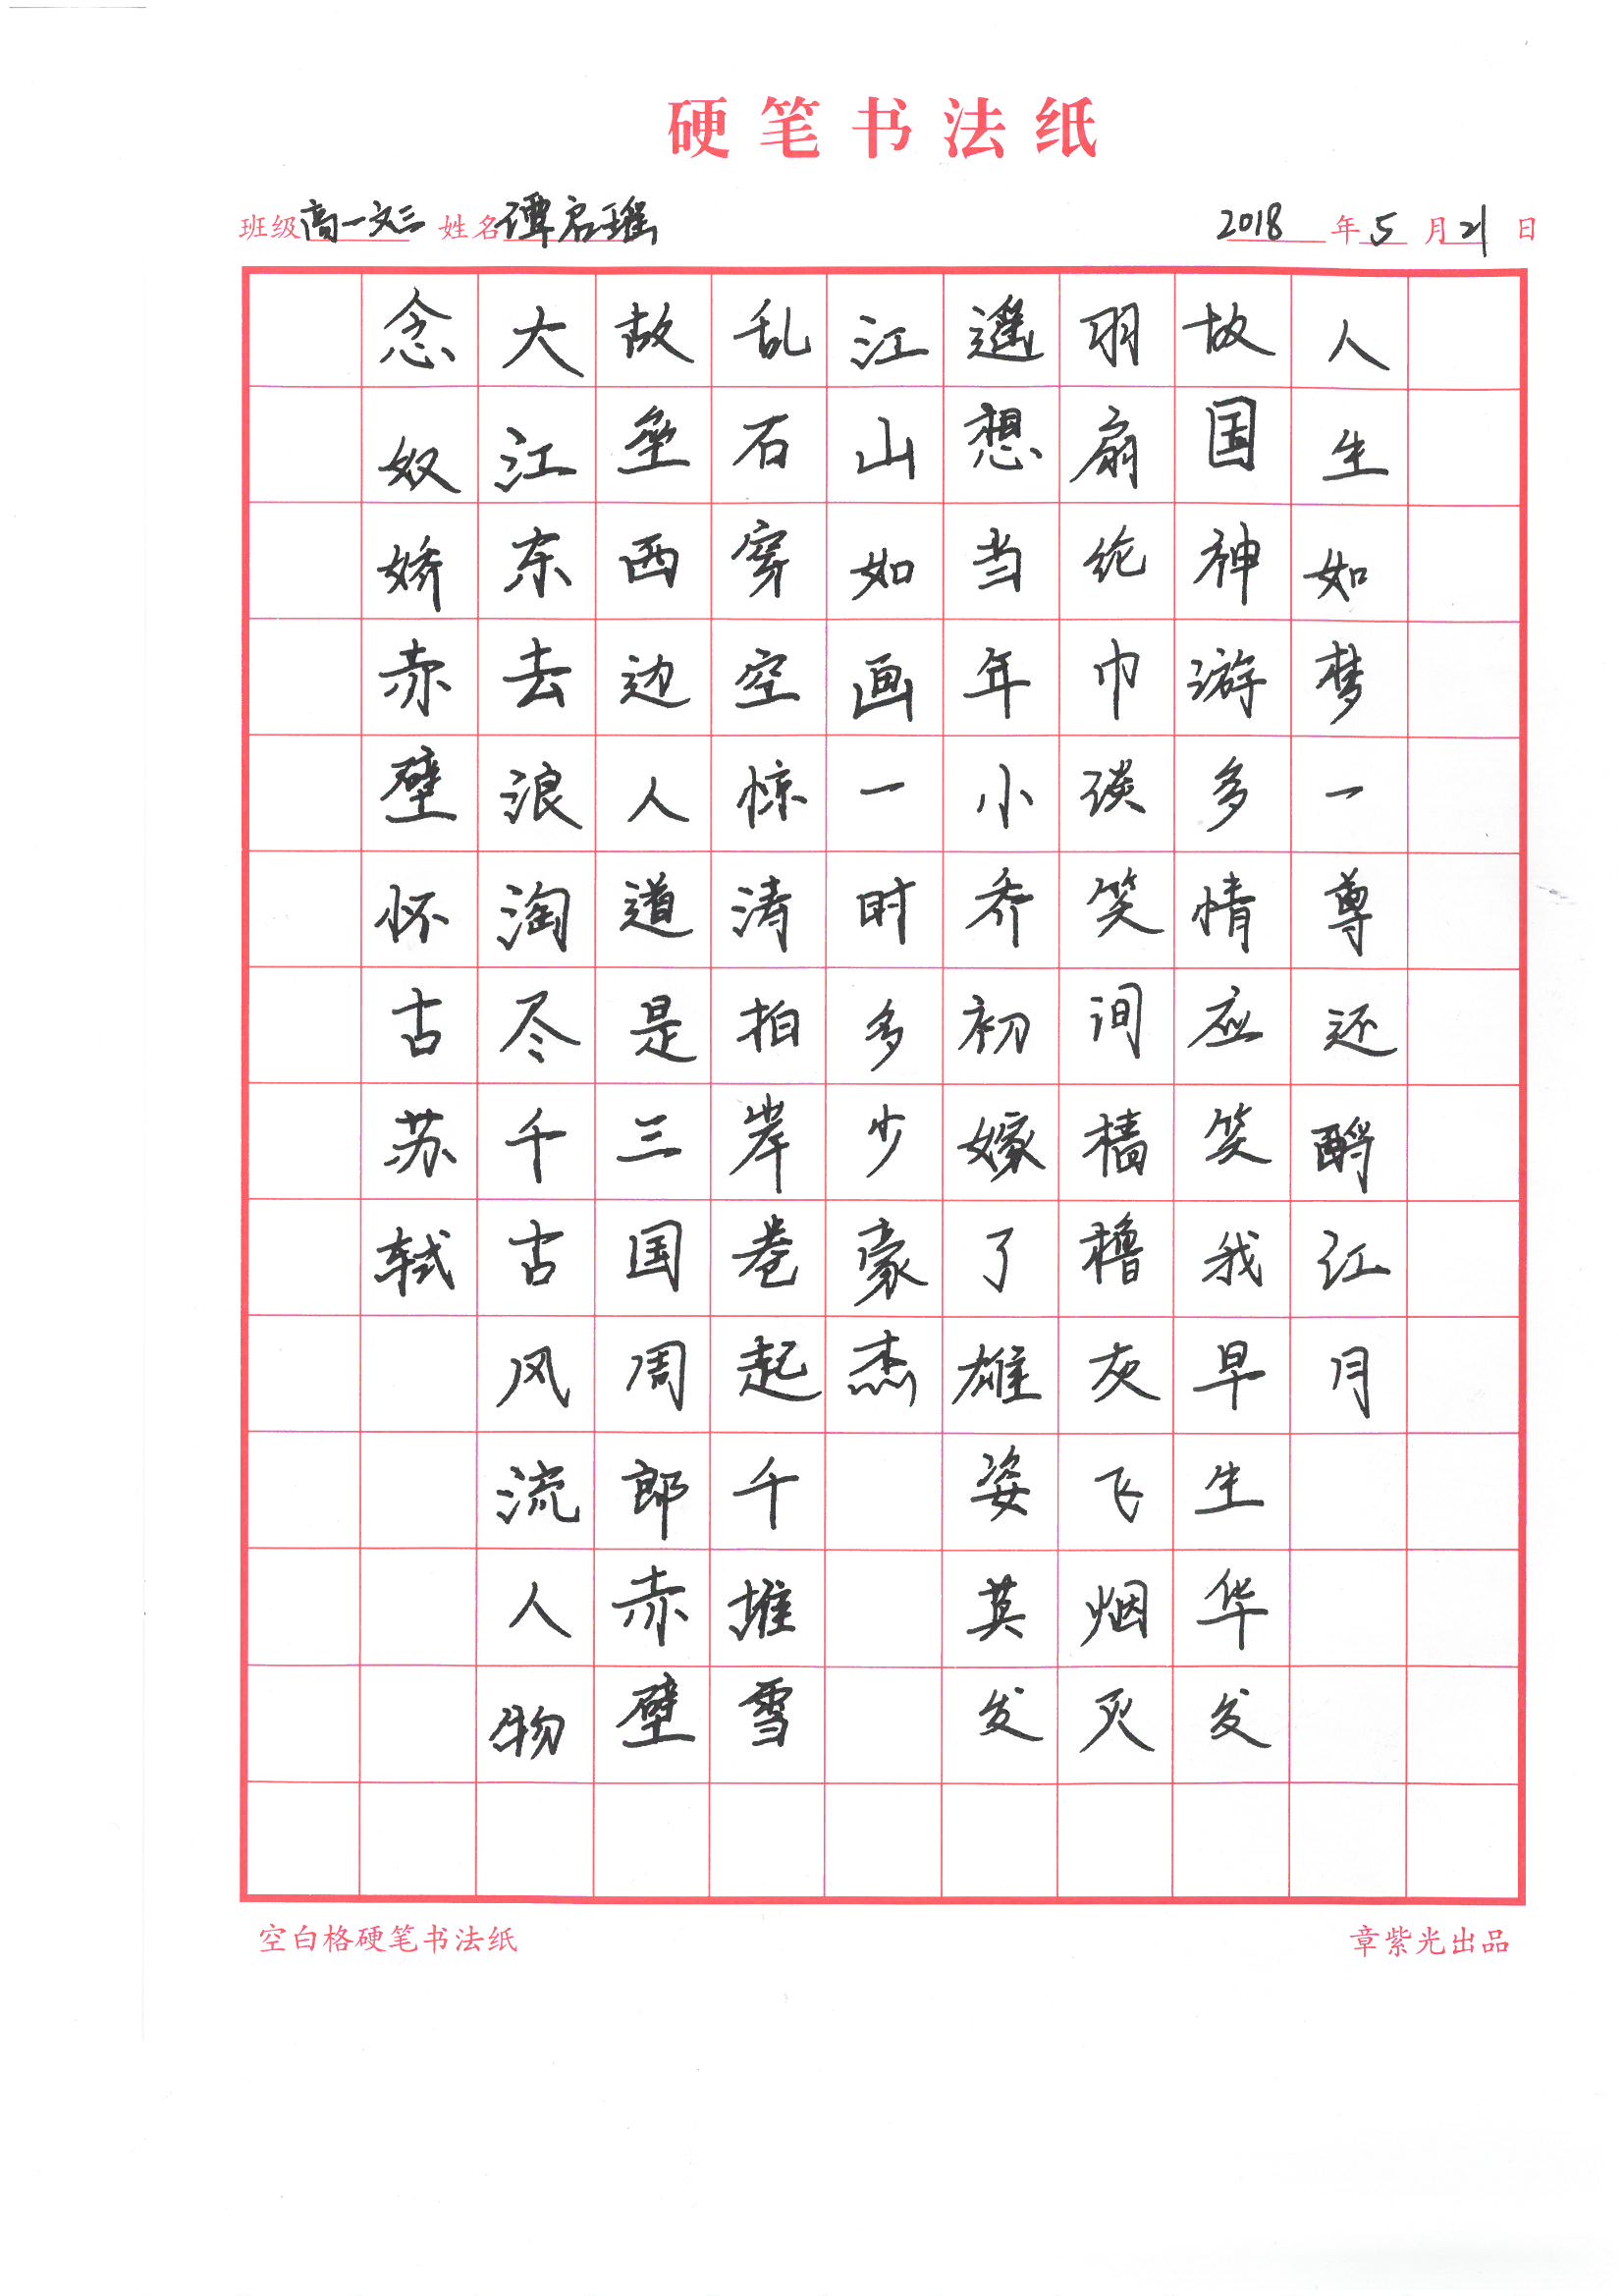 硬笔书法纸
班级 高一文三 姓名 谭启瑶 2018 年 5 月 21 日
念奴娇赤壁怀古苏轼
大江东去浪淘尽千古风流人物
故垒西边人道是三国周郎赤壁
乱石穿空惊涛拍岸卷起千堆雪
江山如画一时多少豪杰
遥想当年小乔初嫁了雄姿英发
羽扇纶巾谈笑间樯橹灰飞烟灭
故国神游多情应笑我早生华发
人生如梦一尊还酹江月
空白格硬笔书法纸 章紫光出品